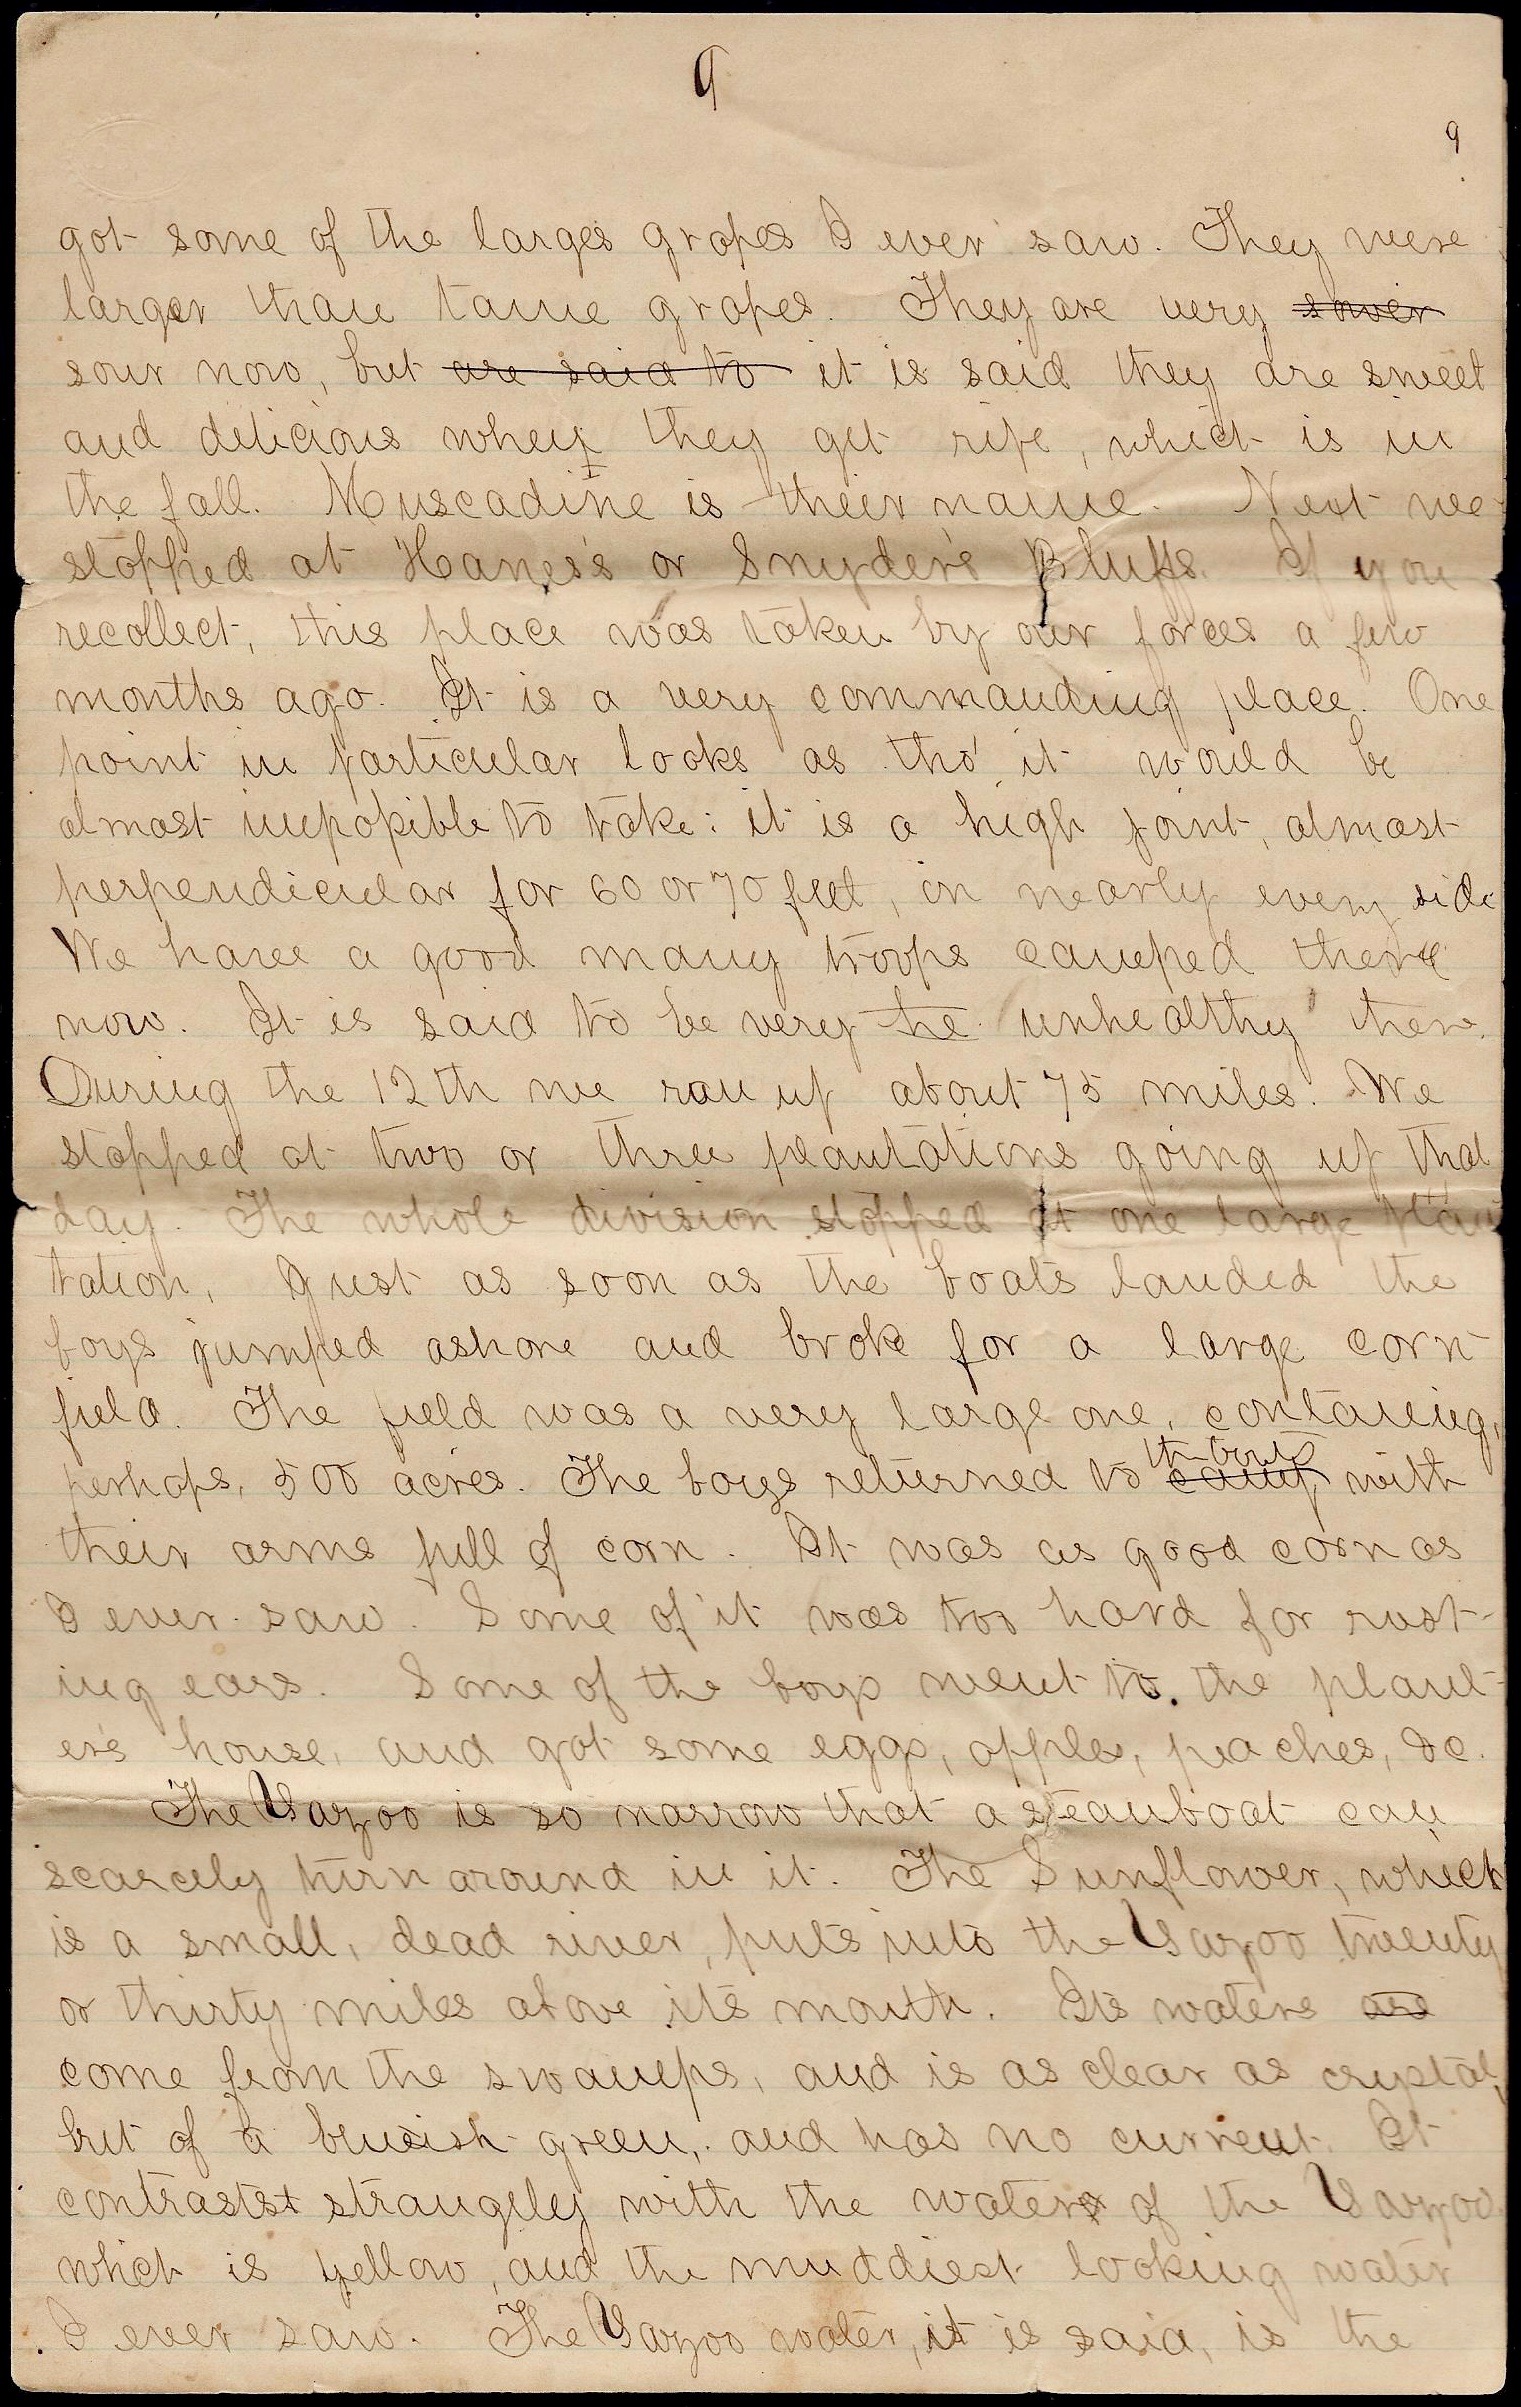 9
9
got some of the larges grapes I ever saw. They were
larger than tame grapes. They are very ~~sower~~
sour now, but ~~are said to~~ it is said they are sweet
and dilicious when they get ripe, which is in
the fall. Muscadine is their name. Next we
stopped at Hanes's or Snyder's Bluffs. If you
recollect, this place was taken by our forces a few
months ago. It is a very commanding place. One
point in particular looks as tho' it would be
almost impossible to take: it is a high point, almost
perpendicular for 60 or 70 feet, on nearly every side
We have a good many troops camped there
now. It is said to be very ~~he~~ unhealthy there.
During the 12th we ran up about 75 miles. We
stopped at two or three plantations going up that
day. The whole division stopped at one large plan
tation, Just as soon as the boats landed the
boys jumped ashore and broke for a large corn-
field. The field was a very large one, containing,
perhaps, 500 acres. The boys returned to ~~camp~~ th boats with
their arms full of corn. It was as good corn as
I ever saw. Some of it was too hard for rost-
ing ears. Some of the boys went to the plant-
er's house, and got some eggs, apples, peaches, &c.
The Yazoo is so narrow that a steamboat can
scarcely turn around in it. The Sunflower, which
is a small, dead river, puts into the Yazoo twenty
or thirty miles above its mouth. Its waters ~~are~~
come from the swamps, and is as clear as crystal,
but of a blueish green, and has no current. It
contrasts strangely with the water of the Yazoo
which is yellow, and the muddiest looking water
I ever saw. The Yazoo water, it is said, is the